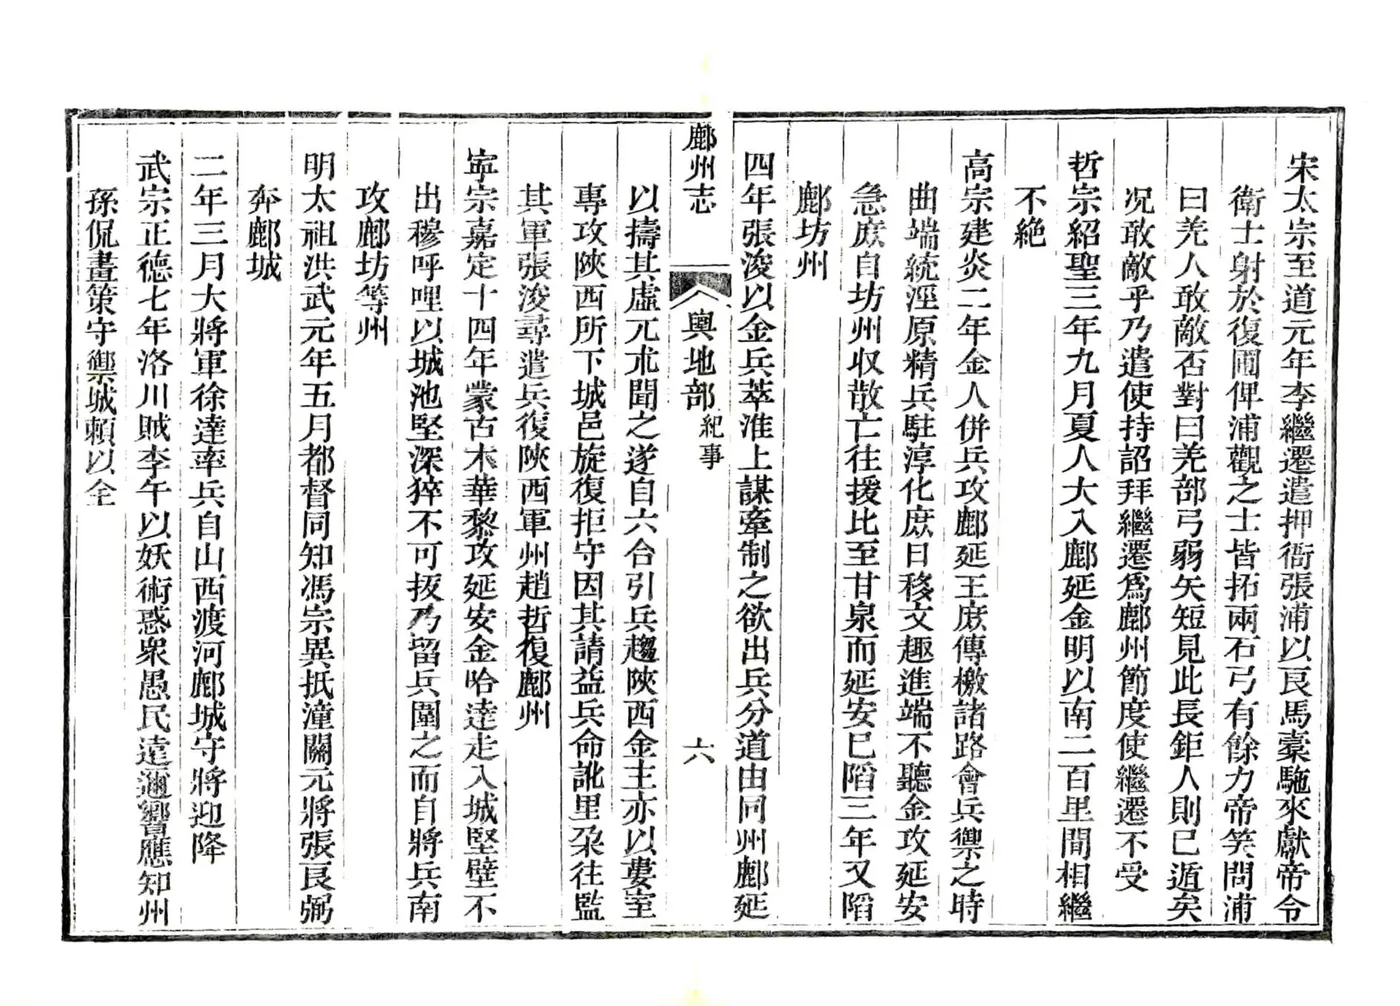 宋太宗至道元年李繼遷遣押衙張浦以良馬橐駞來獻帝令
衞士射於復圃俾浦觀之士皆拓兩石弓有餘力帝笑問浦
曰羌人敢敵否對曰羌部弓弱矢短見此長鉅人則已遁矣
况敢敵乎乃遣使持詔拜繼遷爲鄜州節度使繼遷不受
哲宗紹聖三年九月夏人大入鄜延金明以南二百里間相繼
不絶
高宗建炎二年金人併兵攻鄜延王庶傳檄諸路會兵禦之時
曲端統涇原精兵駐淳化庶日移文趣進端不聽金攻延安
急庶自坊州收散亡往援比至甘泉而延安已陷三年又陷
鄜坊州
四年張浚以金兵萃淮上謀牽制之欲出兵分道由同州鄜延
鄜州志
輿地部 紀事
六
以擣其虛兀朮聞之遂自六合引兵趨陝西金主亦以婁室
專攻陝西所下城邑旋復拒守因其請益兵命訛里朶往監
其軍張浚尋遣兵復陝西軍州趙哲復鄜州
寧宗嘉定十四年蒙古木華黎攻延安金哈達走入城堅壁不
出穆呼哩以城池堅深猝不可拔乃留兵圍之而自將兵南
攻鄜坊等州
明太祖洪武元年五月都督同知馮宗異抵潼關元將張良弼
奔鄜城
二年三月大將軍徐達率兵自山西渡河鄜城守將迎降
武宗正德七年洛川賊李午以妖術惑衆愚民遠邇響應知州
孫侃畫策守禦城賴以全